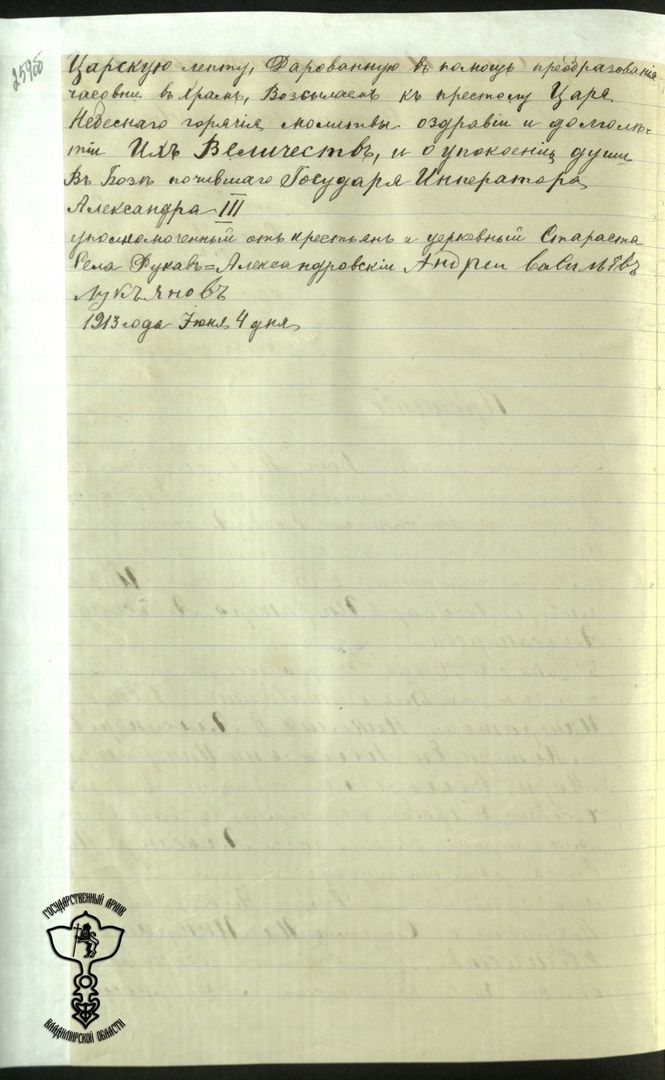 259об
Царскую лепту, Дарованную въ помощь преобразованія
часовни въ Храмъ, Возсылаемъ къ престолу Царя
Небеснаго горячія молитвы о здравіи и долголѣ-
тіи Ихъ Величествъ, и о упокоеніи души
Въ Бозѣ почившаго Государя Императора
Александра III
уполномоченный отъ крестьянъ и церковный Староста
Села Александровскіи Андреи
Лукъяновъ
1913 года Іюня 4 дня
ГОСУДАРСТВЕННЫЙ АРХИВ
ВЛАДИМИРСКОЙ ОБЛАСТИ